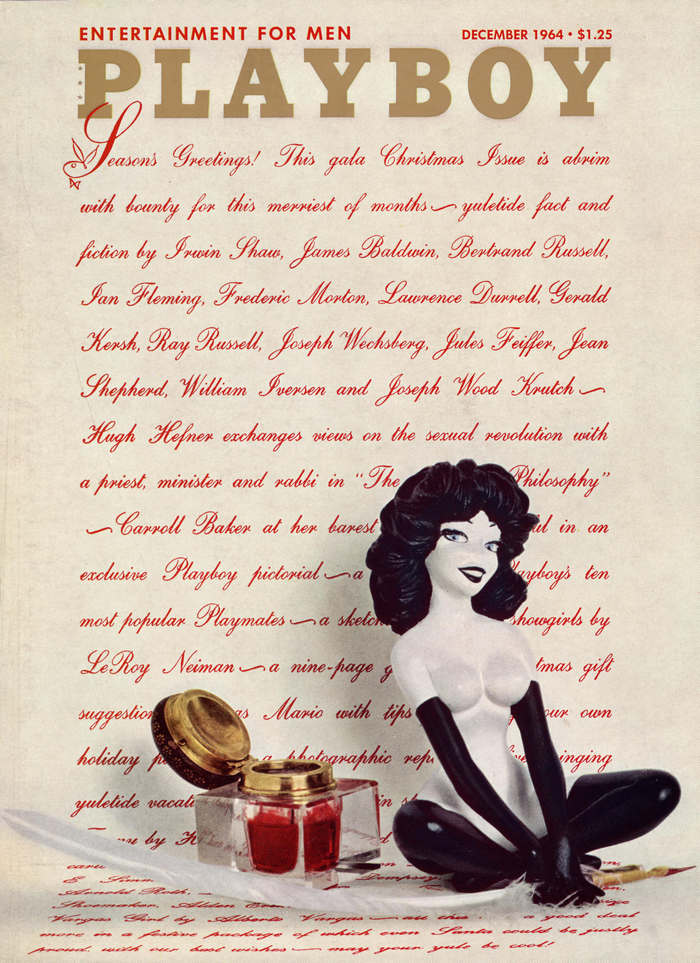 ENTERTAINMENT FOR MEN
DECEMBER 1964 • $1.25
PLAYBOY
Season's Greetings! This gala Christmas Issue is abrim
with bounty for this merriest of months — yuletide fact and
fiction by Irwin Shaw, James Baldwin, Bertrand Russell,
Ian Fleming, Frederic Morton, Lawrence Durrell, Gerald
Kersh, Ray Russell, Joseph Wechsberg, Jules Feiffer, Jean
Shepherd, William Iversen and Joseph Wood Krutch —
Hugh Hefner exchanges views on the sexual revolution with
a priest, minister and rabbi in "The Philosophy"
— Carroll Baker at her barest in an
exclusive Playboy pictorial — a ten
most popular Playmates — a showgirls by
LeRoy Neiman — a nine-page gift
Mario with tips own
holiday a photographic
yuletide
by
E.
Arnold Roth,
Shoemaker, Alden
Vargas Girl by Alberto Vargas — all this a good deal
more in a festive package of which even Santa could be justly
proud, with our best wishes — may your yule be cool!